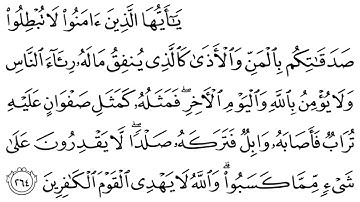 يَـٰٓأَيُّهَا ٱلَّذِينَ ءَامَنُوا۟ لَا تُبْطِلُوا۟
صَدَقَـٰتِكُم بِٱلْمَنِّ وَٱلْأَذَىٰ كَٱلَّذِى يُنفِقُ مَالَهُۥ رِئَآءَ ٱلنَّاسِ
وَلَا يُؤْمِنُ بِٱللَّهِ وَٱلْيَوْمِ ٱلْـَٔاخِرِ ۖ فَمَثَلُهُۥ كَمَثَلِ صَفْوَانٍ عَلَيْهِ
تُرَابٌ فَأَصَابَهُۥ وَابِلٌ فَتَرَكَهُۥ صَلْدًا ۖ لَّا يَقْدِرُونَ عَلَىٰ
شَىْءٍ مِّمَّا كَسَبُوا۟ ۗ وَٱللَّهُ لَا يَهْدِى ٱلْقَوْمَ ٱلْكَـٰفِرِينَ ٢٦٤